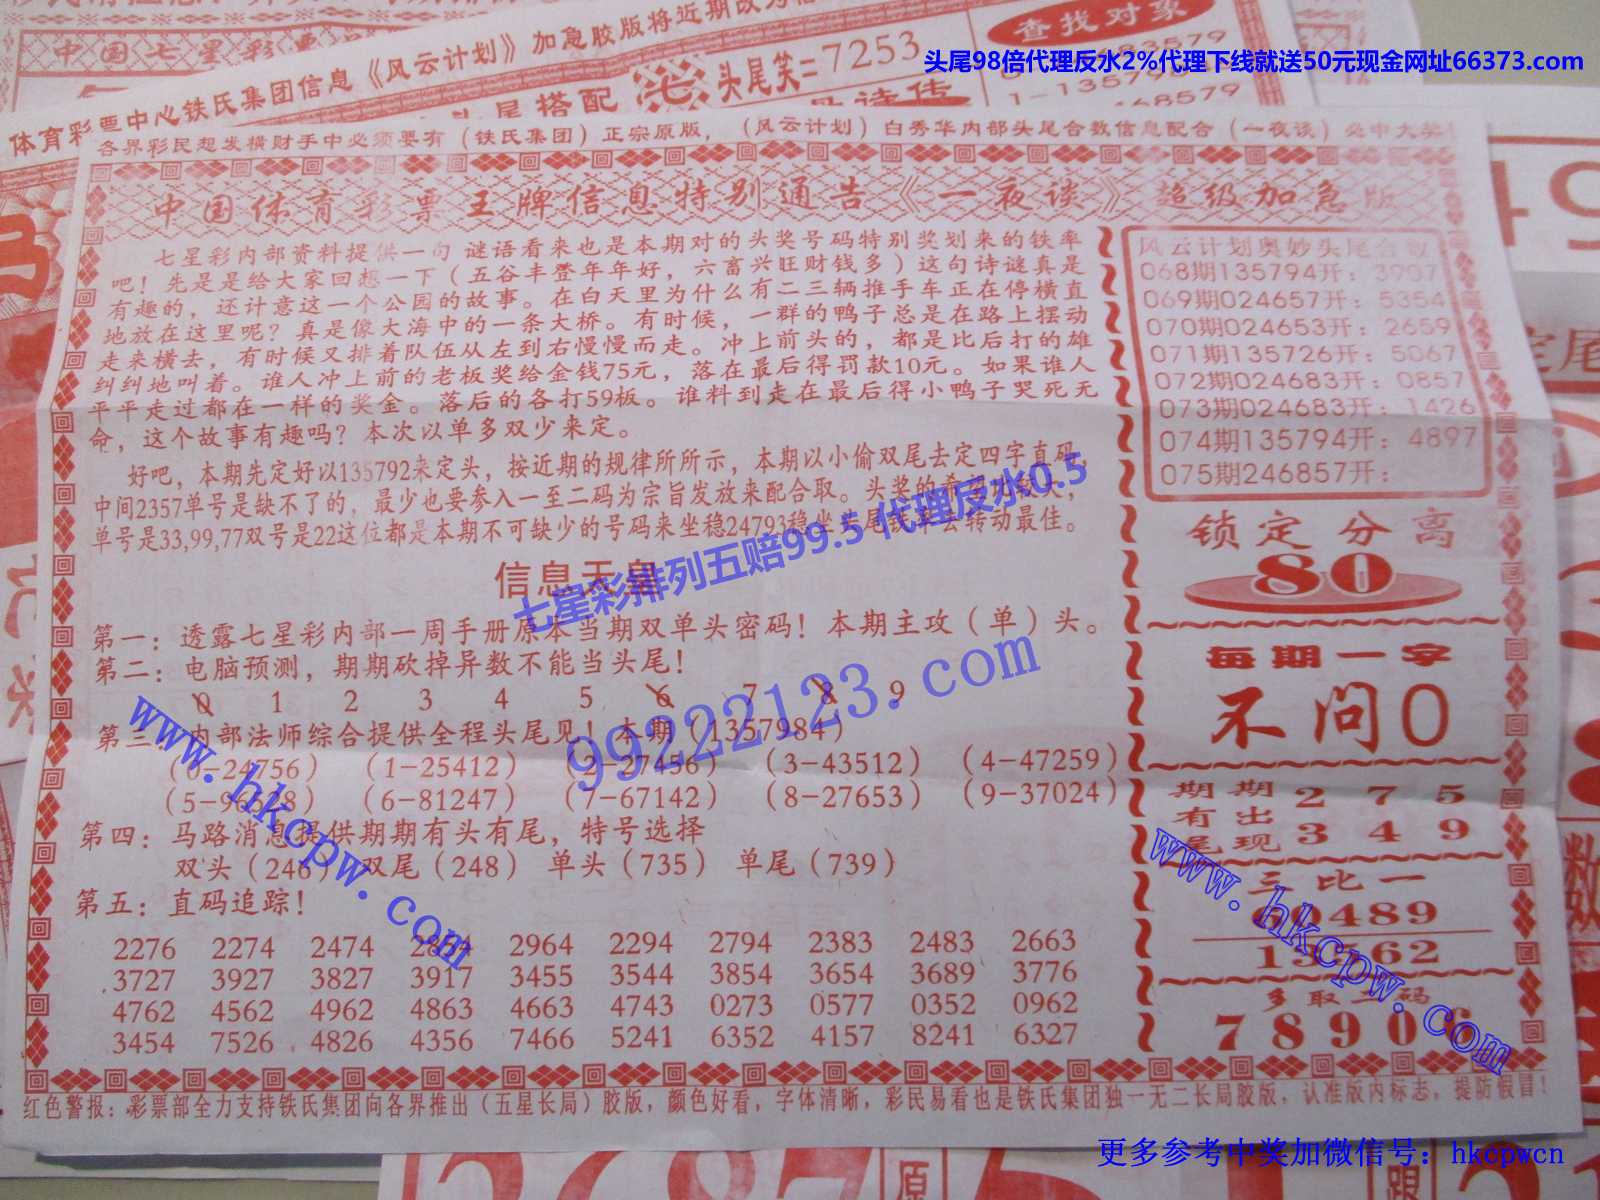 中国七星彩
体育彩票中心铁氏集团信息《风云计划》加急胶版将近期改为
查找对象
头尾98倍代理反水2%代理下线就送50元现金网址66373.com
头尾搭配
头尾笑=7253
1-13579
各界彩民想发横财手中必须要有（铁氏集团）正宗原版，（风云计划）白秀华内部头尾合数信息配合（一夜谈）必中大奖!
中国体育彩票王牌信息特别通告《一夜谈》超级加急版
七星彩内部资料提供一句 谜语看来也是本期对的头奖号码特别奖划来的铁率
吧！先是是给大家回想一下（五谷丰登年年好，六畜兴旺财钱多）这句诗谜真是
有趣的，还计意这一个公园的故事。在白天里为什么有二三辆推手车正在停横直
地放在这里呢？真是像大海中的一条大桥。有时候，一群的鸭子总是在路上摆动
走来横去，有时候又排着队伍从左到右慢慢而走。冲上前头的，都是比后打的雄
纠纠地叫着。谁人冲上前的老板奖给金钱75元，落在最后得罚款10元。如果谁人
平平走过都在一样的奖金。落后的各打59板。谁料到走在最后得小鸭子哭死无
命，这个故事有趣吗？本次以单多双少来定。
好吧，本期先定好以135792来定头，按近期的规律所所示，本期以小偷双尾去定四字直码。
中间2357单号是缺不了的，最少也要参入一至二码为宗旨发放来配合取。头奖的希望比较大，
单号是33,99,77双号是22这位都是本期不可缺少的号码来坐稳24793稳坐头尾铁率去转动最佳。
七星彩排列五赔99.5 代理反水0.5
信息天皇
第一：透露七星彩内部一周手册原本当期双单头密码！本期主攻（单）头。
第二：电脑预测，期期砍掉异数不能当头尾！
0 1 2 3 4 5 6 7 8 9
第三：内部法师综合提供全程头尾见！本期（1357984）
99222123.com
（0-24756）（1-25412）（2-27456）（3-43512）（4-47259）
（5-96528）（6-81247）（7-67142）（8-27653）（9-37024）
第四：马路消息提供期期有头有尾，特号选择
双头（246） 双尾（248） 单头（735） 单尾（739）
第五：直码追踪！
www.hkcpw.com
2276 2274 2474 2854 2964 2294 2794 2383 2483 2663
3727 3927 3827 3917 3455 3544 3854 3654 3689 3776
4762 4562 4962 4863 4663 4743 0273 0577 0352 0962
3454 7526 4826 4356 7466 5241 6352 4157 8241 6327
风云计划奥妙头尾合数
068期135794开：3907
069期024657开：5354
070期024653开：2659
071期135726开：5067
072期024683开：0857
073期024683开：1426
074期135794开：4897
075期246857开：
锁定分离
80
每期一字
不问0
期期 2 7 5
有出
尾现 3 4 9
三比一
0489
62
多取二码
7 8 9 0 6
www.hkcpw.com
红色警报：彩票部全力支持铁氏集团向各界推出（五星长局）胶版，颜色好看，字体清晰，彩民易看也是铁氏集团独一无二长局胶版，认准版内标志，提防假冒！
更多参考中奖加微信号：hkcpwcn
原
跟